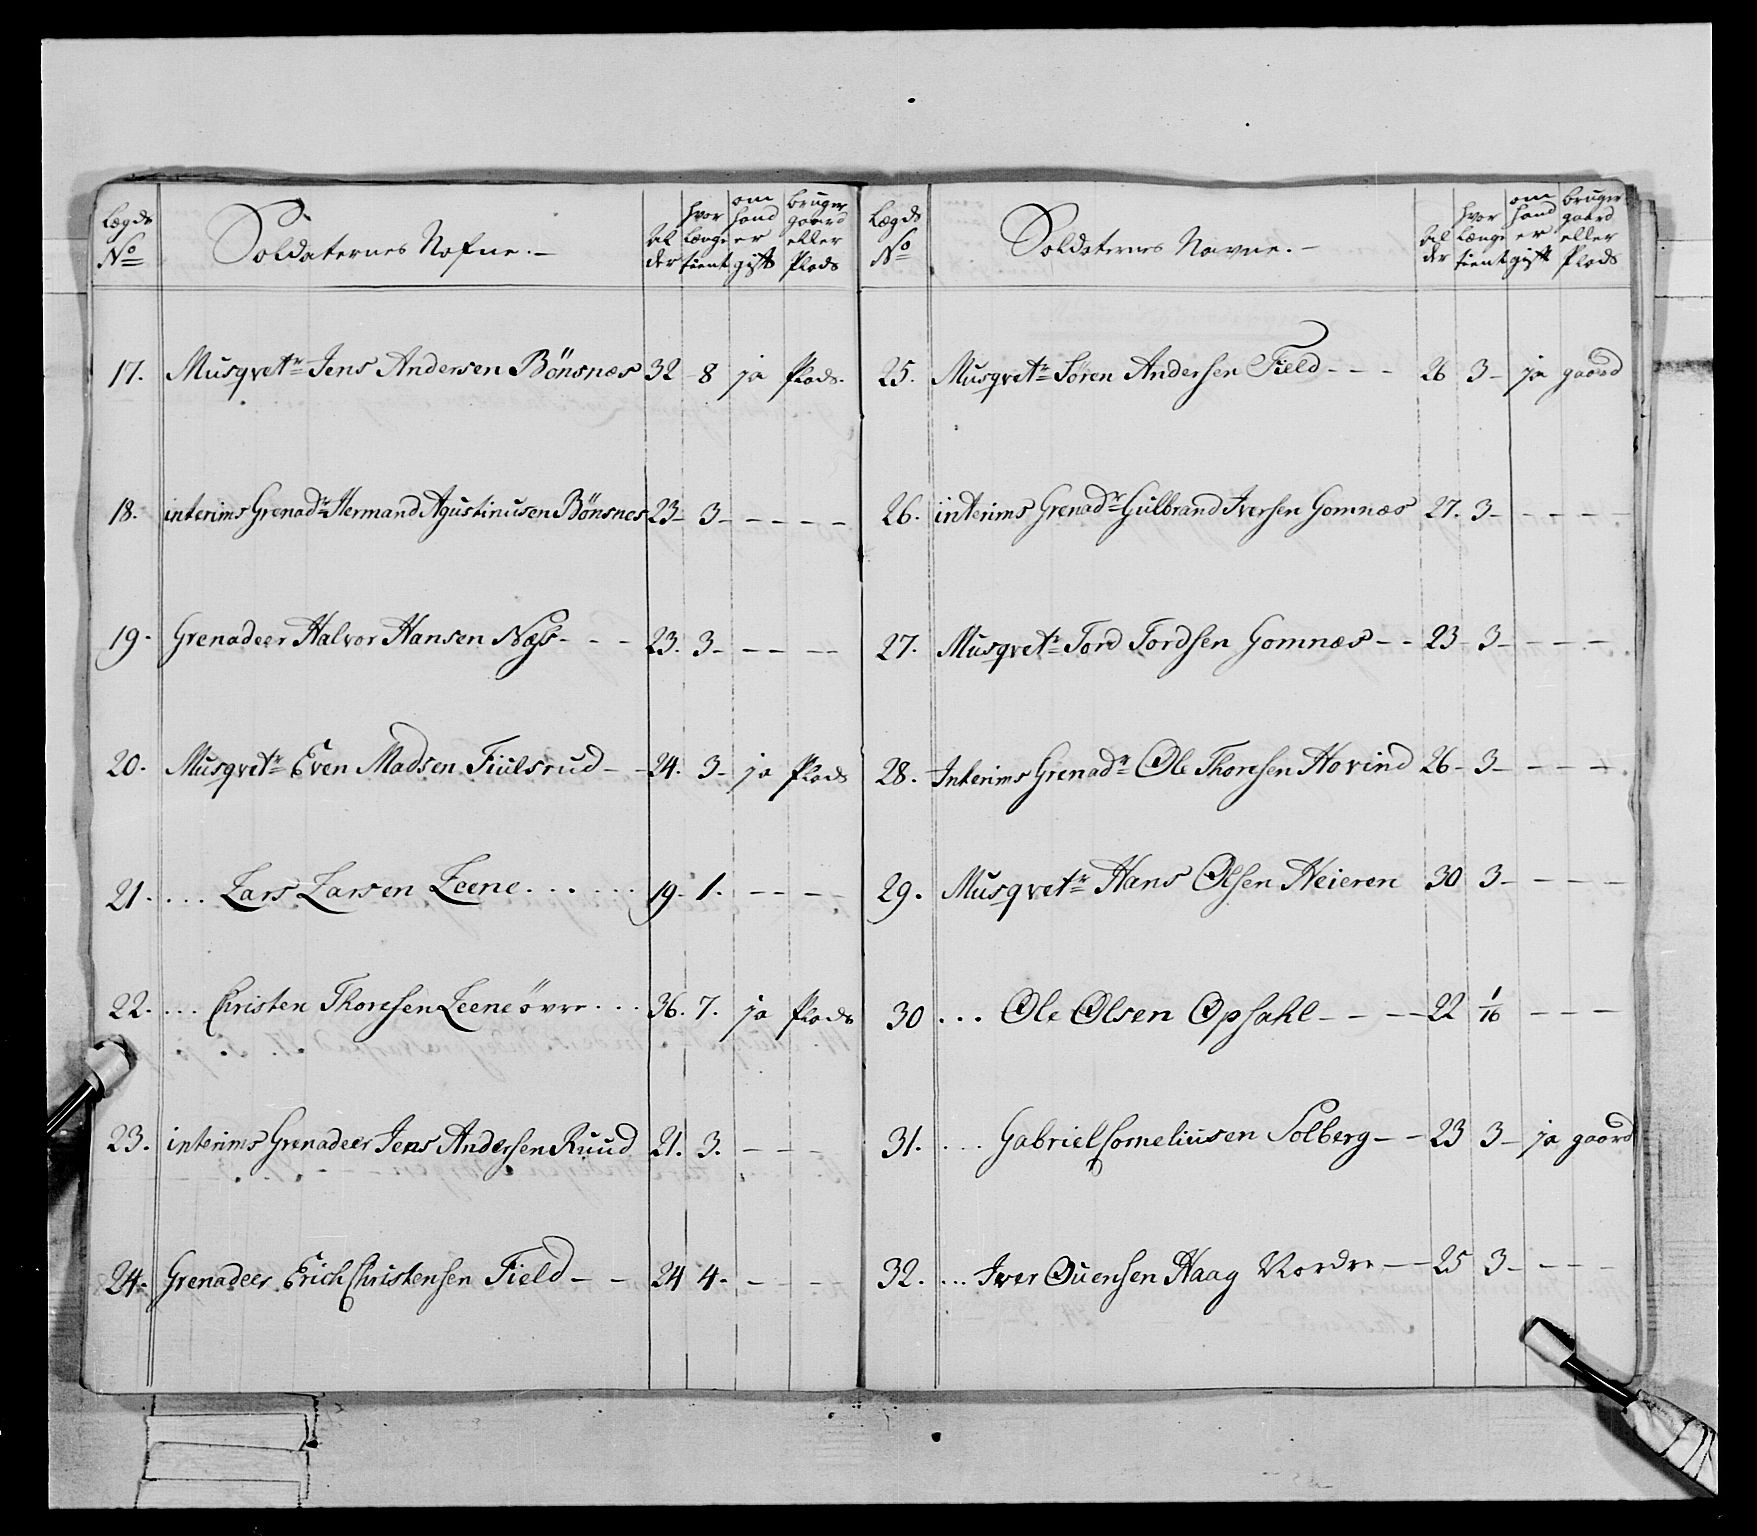 Lægds No Soldaternes Nafne.- Al der hvor længe tient om hand er gift bruger gaard eller Plads
17. Musqvetr Jens Andersen Bönsnæs 32 - 8 ja Plads.
18. interims Grenadr Hermand Agustinusen Bönsnes 23- 3 - - - - -
19. Grenadeer Halvor Hansen Næss - - - 23. 3 - - - - -
20. Musqvetr Even Madsen Fiulsrud - - 24. 3 - ja Plads
21. ... Lars Larsen Leene ...... 19. 1. - - - -
22. ... Christen Thoresen Leene övre ... 36. 7. ja Plads
23. interims Grenadeer Jens Andersen Ruud 21. 3. - - -
24. Grenadeer Erich Christensen Field - - 24 4. - - -
Lægds No Soldaternes Navne.- Al der hvor længe tient om hand er gift bruger gaard eller Plads
25. Musqvetr Sören Andersen Field - - - 26 3 - ja gaard
26. interims Grenadr Gulbrand Iversen Gomnæs 27. 3 - - - - -
27. Musqvetr Tord Tordsen Gomnæs - - 23 3 - - - - -
28. Interims Grenadr Ole Thoresen Hovind 26 - 3 - - - - -
29. Musqvetr Hans Olsen Heieren 30 3 - - - - -
30 ... Ole Olsen Opsahl - - - - 22 1/16 - - -
31. ... Gabriel Corneliusen Solberg - - 23 3 - ja gaard
32. ... Iver Ouensen Haag Nordre - - 25 3 - - - -